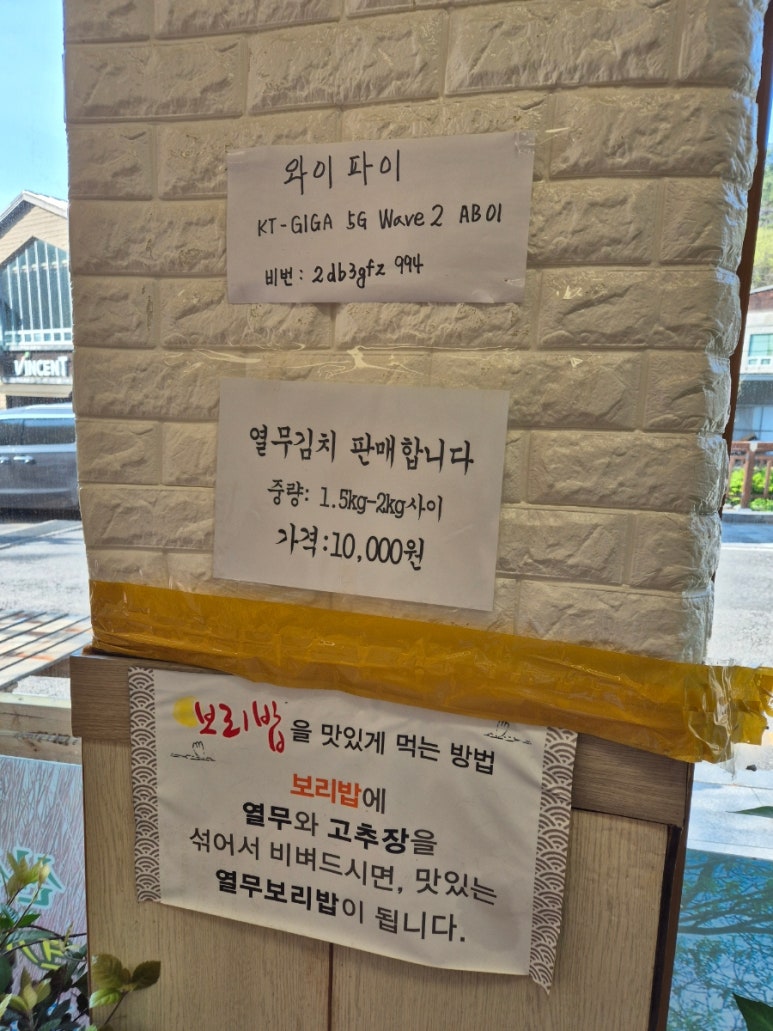 와이파이
KT-GIGA 5G Wave2 AB01
비번: 2db3gfz994
열무김치 판매합니다
중량: 1.5kg-2kg사이
가격:10,000원
보리밥을 맛있게 먹는 방법
보리밥에
열무와 고추장을
섞어서 비벼드시면, 맛있는
열무보리밥이 됩니다.
VINCENT